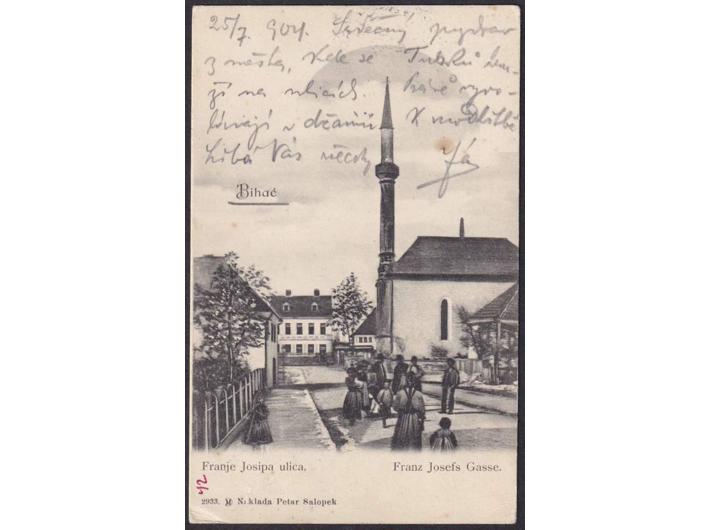 25/7 904. Srdečný pozdrav
z města, kde se Turků
na ulicích.
v džamii K modlitbě
Líbá Vás všechny Já
Bihać
Franje Josipa ulica. Franz Josefs Gasse.
42
2933. Naklada Petar Salopek